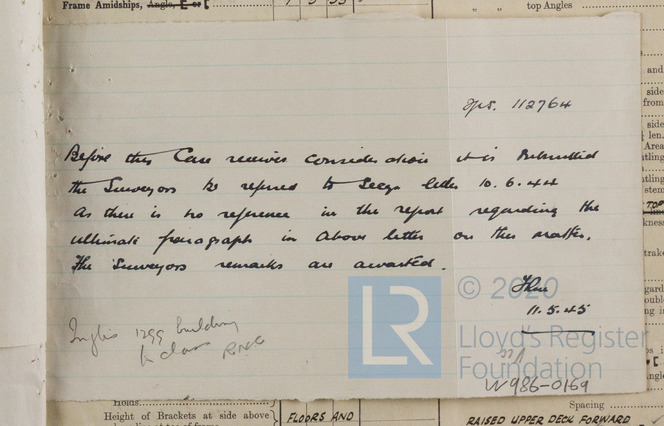 Frame Amidships, Angle, E or [
top Angles
Rpt. 112764
Before this Case receives consideration it is submitted
the Surveyors be referred to Secys letter 10.6.44
As there is no reference in the report regarding the
ultimate paragraph in above letter on this matter.
The Surveyors remarks are awaited.
11.5.45
Inglis 1299 building
to class
LR
© 2020
Lloyd's Register
Foundation
W986-0169
Holds
Height of Brackets at side above
FLOORS AND
Spacing
RAISED UPPER DECK FORWARD